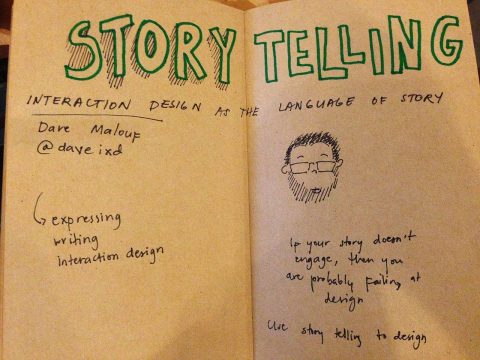 STORY TELLING
INTERACTION DESIGN AS THE LANGUAGE OF STORY
Dave Malouf
@daveixd
expressing
writing
Interaction design
If your story doesn't
engage, then you
are probably failing at
design
Use story telling to design